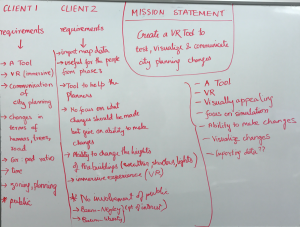 CLIENT 1
requirements
→ A Tool
→ VR (immersive)
→ Communication
of city planning
→ changes in
terms of
humans, trees,
→ time
→ zoning, planning
* public
CLIENT 2
requirements
→ import map data
→ useful for the people
from phase 2
→ Tool to help the
Planners
→ No focus on what
changes should be made
but give an ability to make
changes
→ Ability to change the heights
of the buildings
→ immersive experience (VR)
* No involvement of public
MISSION STATEMENT
Create a VR Tool to
test, visualize & communicate
city planning changes
- A Tool
- VR
- Visually appealing
- focus on simulation
- Ability to make changes
- Visualize changes
- Importing data ??